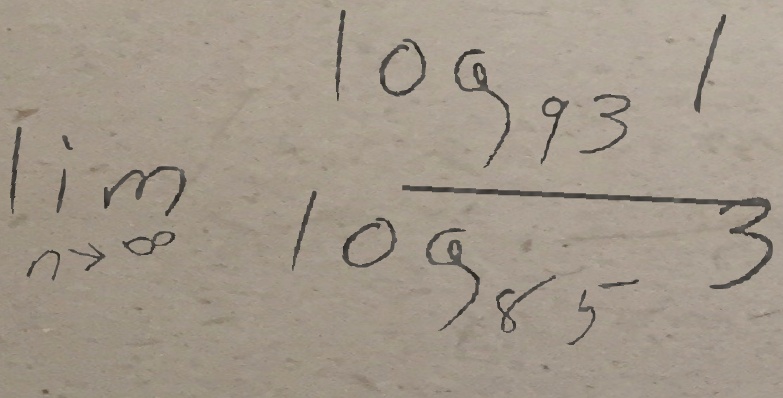 \lim_{n \to \infty} \frac{\log_{93} 1}{\log_{85} 3}